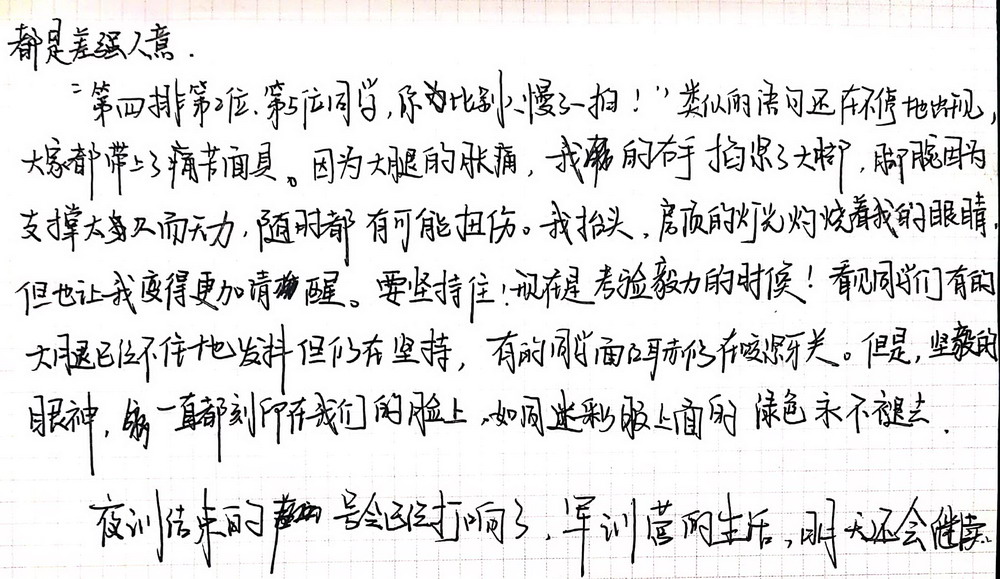 都是差强人意.
“第四排第2位、第5位同学,你为比别人慢了一拍!”类似的语句还在不停地出现,
大家都带上了痛苦面具。因为大腿的胀痛,我的右手掐紧了大腿,脚腕因为
支撑太久而无力,随时都有可能扭伤。我抬头,房顶的灯光灼烧着我的眼睛,
但也让我变得更加清醒。要坚持住!现在是考验毅力的时候!看见同学们有的
大腿已经不住地发抖但仍在坚持,有的同学面红耳赤仍在咬紧牙关。但是,坚毅的
眼神,一直都刻印在我们的脸上,如同迷彩服上面的绿色永不褪去.
夜训结束的号令已经打响了,军训营的生活,明天还会继续.